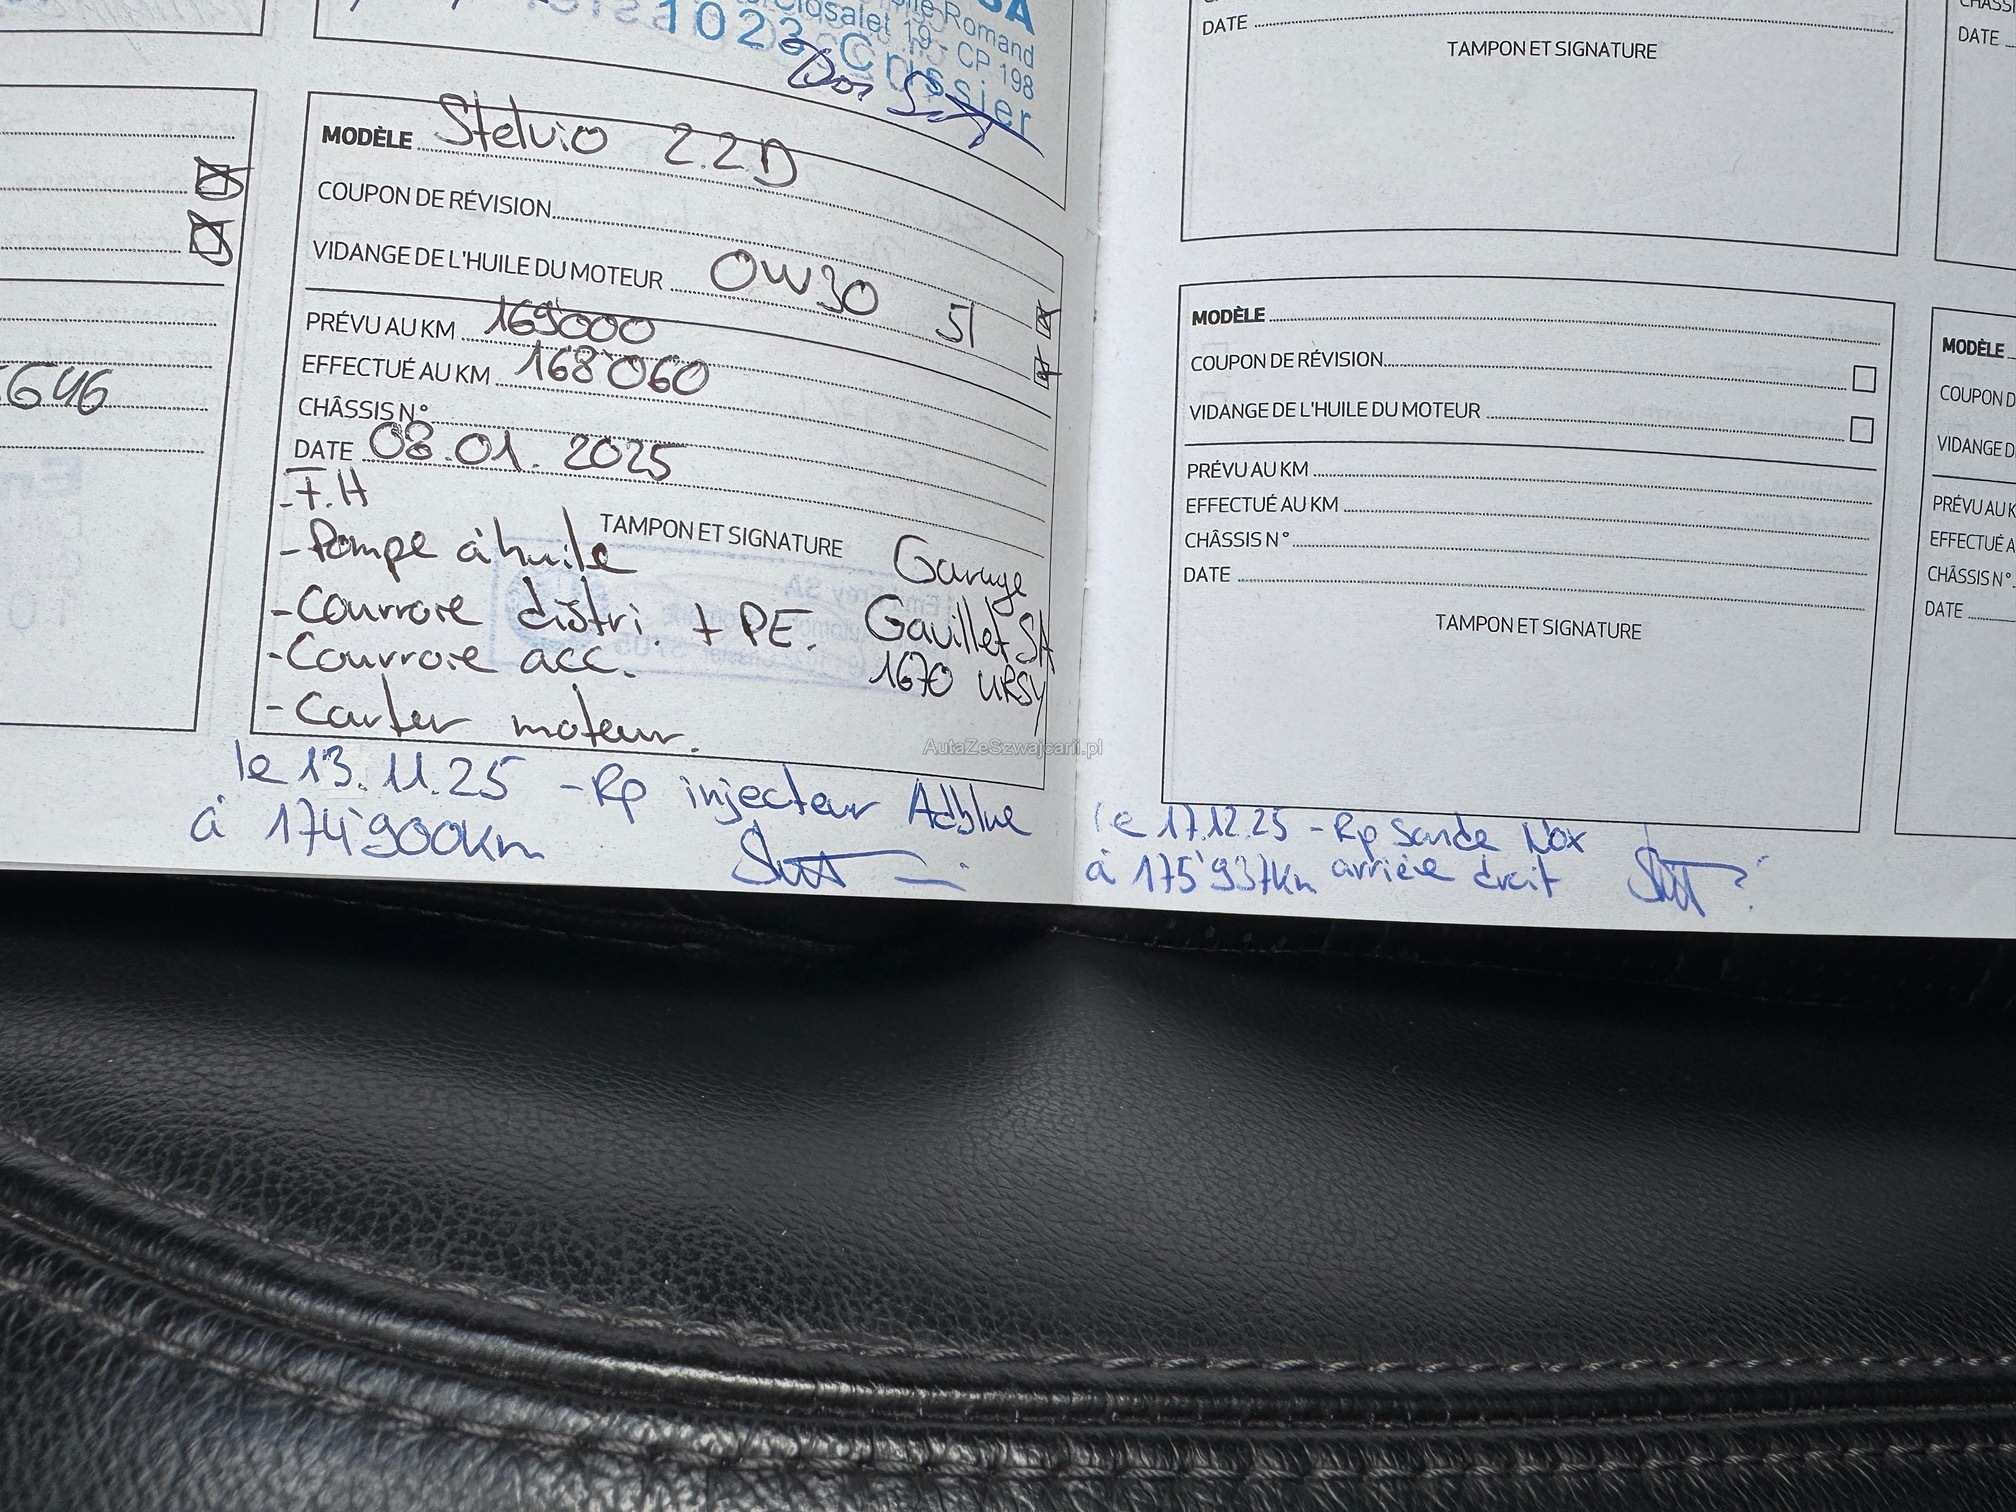 SA
Romand
Closalet 19 - CP 198
1023 Crissier
MODÈLE Stelvio 2.2D
COUPON DE RÉVISION
VIDANGE DE L'HUILE DU MOTEUR 0W30 5l
PRÉVU AU KM 169000
EFFECTUÉ AU KM 168'060
CHÂSSIS N°
DATE 08.01.2025
TAMPON ET SIGNATURE
- F.H
- Pompe à huile
- Courroie distri. + PE.
- Courroie acc.
- Carter moteur.
Garage
Gavillet SA
1670 URSY
le 13.11.25 - Rp injecteur Adblue
à 174'900km
646
DATE
TAMPON ET SIGNATURE
MODÈLE
COUPON DE RÉVISION
VIDANGE DE L'HUILE DU MOTEUR
PRÉVU AU KM
EFFECTUÉ AU KM
CHÂSSIS N°
DATE
TAMPON ET SIGNATURE
le 17.12.25 - Rp sonde Nox
à 175'937km arrière droit
DATE
MODÈLE
COUPON D
VIDANGE D
PRÉVU AU K
EFFECTUÉ A
CHÂSSIS N°
DATE
AutaZeSzwajcarii.pl